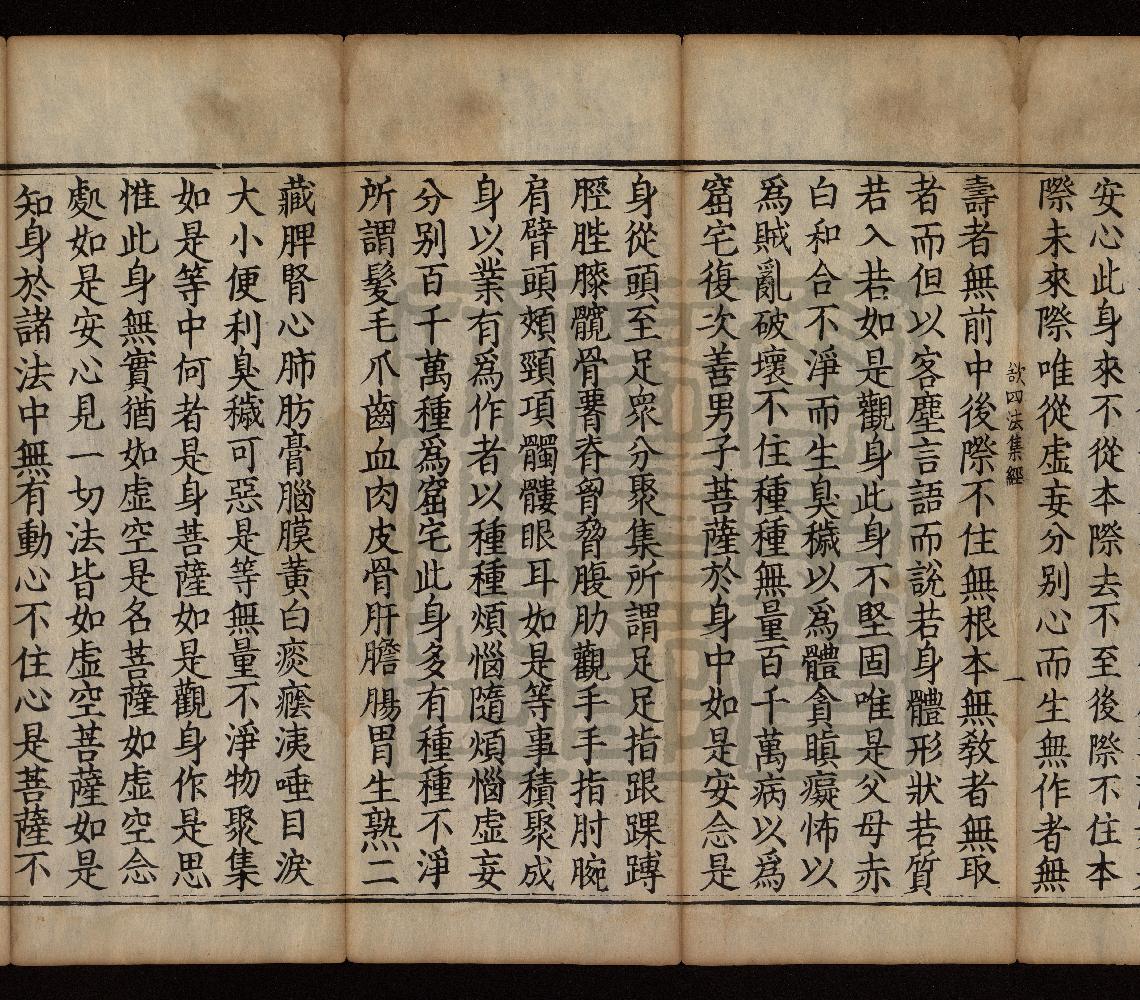 安心此身來不從本際去不至後際不住本
際未來際唯從虛妄分别心而生無作者無
欲四法集經 一
壽者無前中後際不住無根本無教者無取
者而但以客塵言語而說若身體形狀若質
若入若如是觀身此身不堅固唯是父母赤
白和合不淨而生臭穢以爲體貪瞋癡怖以
爲賊亂破壞不住種種無量百千萬病以爲
窟宅復次善男子菩薩於身中如是安念是
身從頭至足衆分聚集所謂足足指跟踝䏶
脛膝髖骨脊胷脅腹肋觀手手指肘腕
肩臂頭頰頸項髑髏眼耳如是等事積聚成
身以業有爲作者以種種煩惱隨煩惱虛妄
分别百千萬種爲窟宅此身多有種種不淨
所謂髮毛爪齒血肉皮骨肝膽腸胃生熟二
藏脾腎心肺肪膏腦膜黃白痰癊洟唾目淚
大小便利臭穢可惡是等無量不淨物聚集
如是等中何者是身菩薩如是觀身作是思
惟此身無實猶如虛空是名菩薩如虛空念
處如是安心見一切法皆如虛空菩薩如是
知身於諸法中無有動心不住心是菩薩不